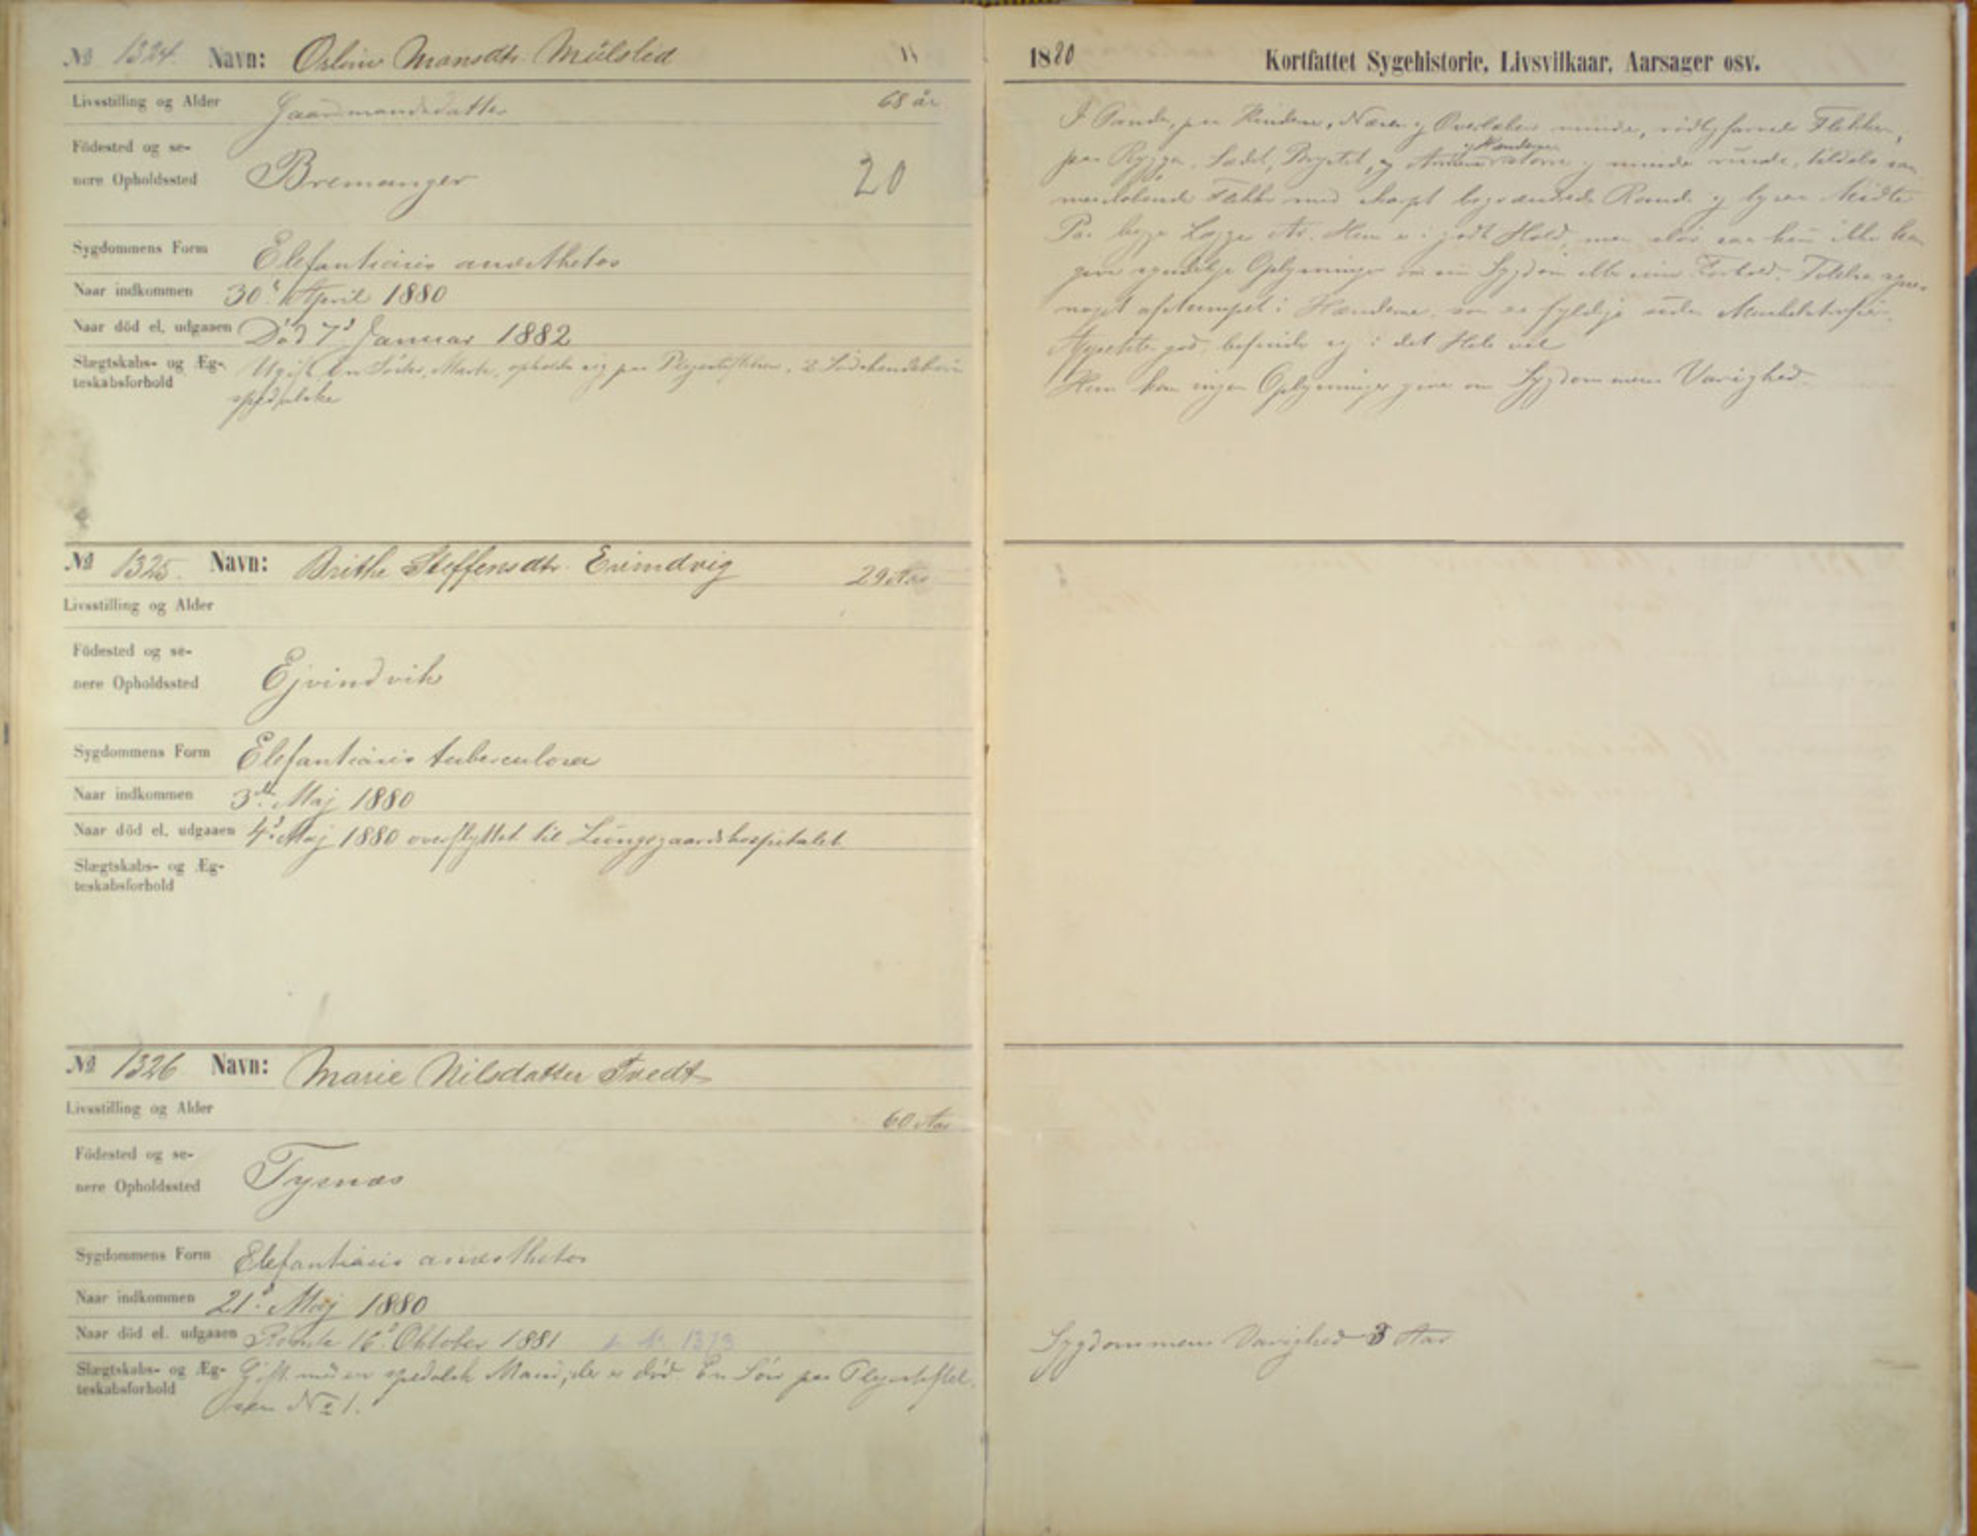 № 1324. Navn: Mansdtr. Mülslid
Livsstilling og Alder Gaardmandsdatter 68 år
Födested og se-
nere Opholdssted Bremanger 20
Sygdommens Form Elefantiasis anæsthetos
Naar indkommen 30' April 1880
Naar död el. udgaaen Död 7' Januar 1882
Slægtskabs- og Æg- Ugift. En Söster, Marte, opholder sig paa Plejestiftelsen, 2 Södskendebörn
teskabsforhold spedalske
№ 1325. Navn: Brithe Steffensdtr. Evindvig 29 Aar
Livsstilling og Alder
Födested og se-
nere Opholdssted Ejvindvik
Sygdommens Form Elefantiasis tuberculosa
Naar indkommen 3die Maj 1880
Naar död el. udgaaen 4' Maj 1880 overflyttet til Lungegaardshospitalet
Slægtskabs- og Æg-
teskabsforhold
№ 1326 Navn: Marie Nilsdatter Tvedt
Livsstilling og Alder 60 Aar
Födested og se-
nere Opholdssted Tysnæs
Sygdommens Form Elefantiasis anæsthetos
Naar indkommen 21' Maj 1880
Naar död el. udgaaen Rømte 16' Oktober 1881 № 1373
Slægtskabs- og Æg- Gift med en spedalsk Mand, der er död. En Sön paa Plejestiftel-
teskabsforhold sen № 1.
1880 Kortfattet Sygehistorie, Livsvilkaar, Aarsager osv.
I Panden, paa Kinderne, Næsen og Overlæben mindre, rödligfarvede Flekker,
og Hænderne
paa Ryggen, Sædet, Brystet, og Armene større og mindre runde, tildels sam
menløbende Flekker med skarpt begrændsede Rande og lysere Midte
Paa begge Lægge Ar. Hun er i godt Hold, men slöv saa hun ikke kan
give synderlige Oplysninger om sin Sygdom eller sine Forhold. Følelsen synes
noget afstumpet i Hænderne, som er fyldige uden Muskelatrofier.
Appetiten god, befinder sig i det Hele vel
Hun kan ingen Oplysninger give om Sygdommens Varighed.
Sygdommens Varighed 3 Aar